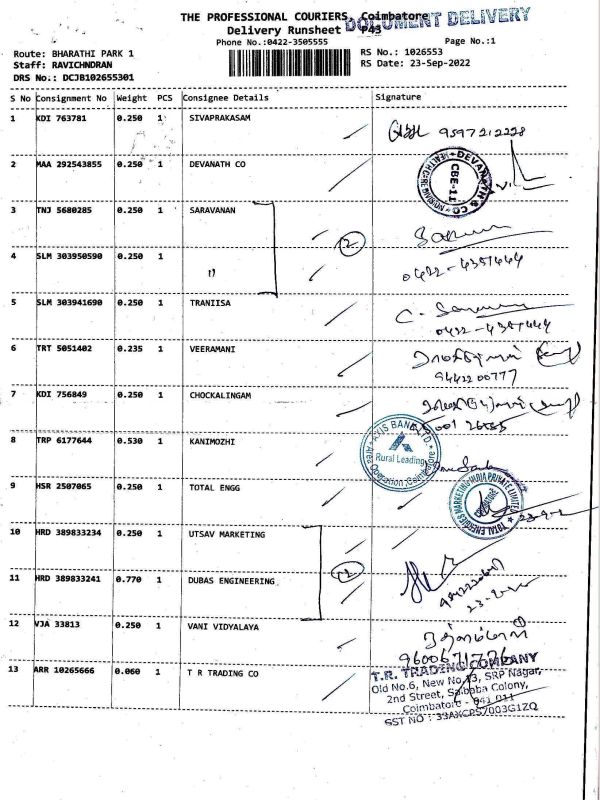 THE PROFESSIONAL COURIERS, Coimbatore
DOCUMENT DELIVERY
Delivery Runsheet P43
Phone No.:0422-3505555 Page No.:1
Route: BHARATHI PARK 1 RS No.: 1026553
Staff: RAVICHNDRAN RS Date: 23-Sep-2022
DRS No.: DCJB102655301
S No Consignment No Weight PCS Consignee Details Signature
1 KDI 763781 0.250 1 SIVAPRAKASAM
9597212228
2 MAA 292543855 0.250 1 DEVANATH CO
DEVANATH & CO
CBE-11
3 TNJ 5680285 0.250 1 SARAVANAN
2
4 SLM 303950590 0.250 1
"
0422-4351444
5 SLM 303941690 0.250 1 TRANIISA
0422-4351444
6 TRT 5051402 0.235 1 VEERAMANI
9442200777
7 KDI 756849 0.250 1 CHOCKALINGAM
8 TRP 6177644 0.530 1 KANIMOZHI
AXIS BANK LTD.
Rural Leading
9 HSR 2507065 0.250 1 TOTAL ENGG
TOTAL ENERGIES MARKETING INDIA PRIVATE LIMITED
10 HRD 389833234 0.250 1 UTSAV MARKETING
2
11 HRD 389833241 0.770 1 DUBAS ENGINEERING
12 VJA 33813 0.250 1 VANI VIDYALAYA
13 ARR 10265666 0.060 1 T R TRADING CO
T.R. TRADING COMPANY
Old No.6, New No.13, SRP Nagar,
2nd Street, Saibaba Colony,
Coimbatore - 641 011